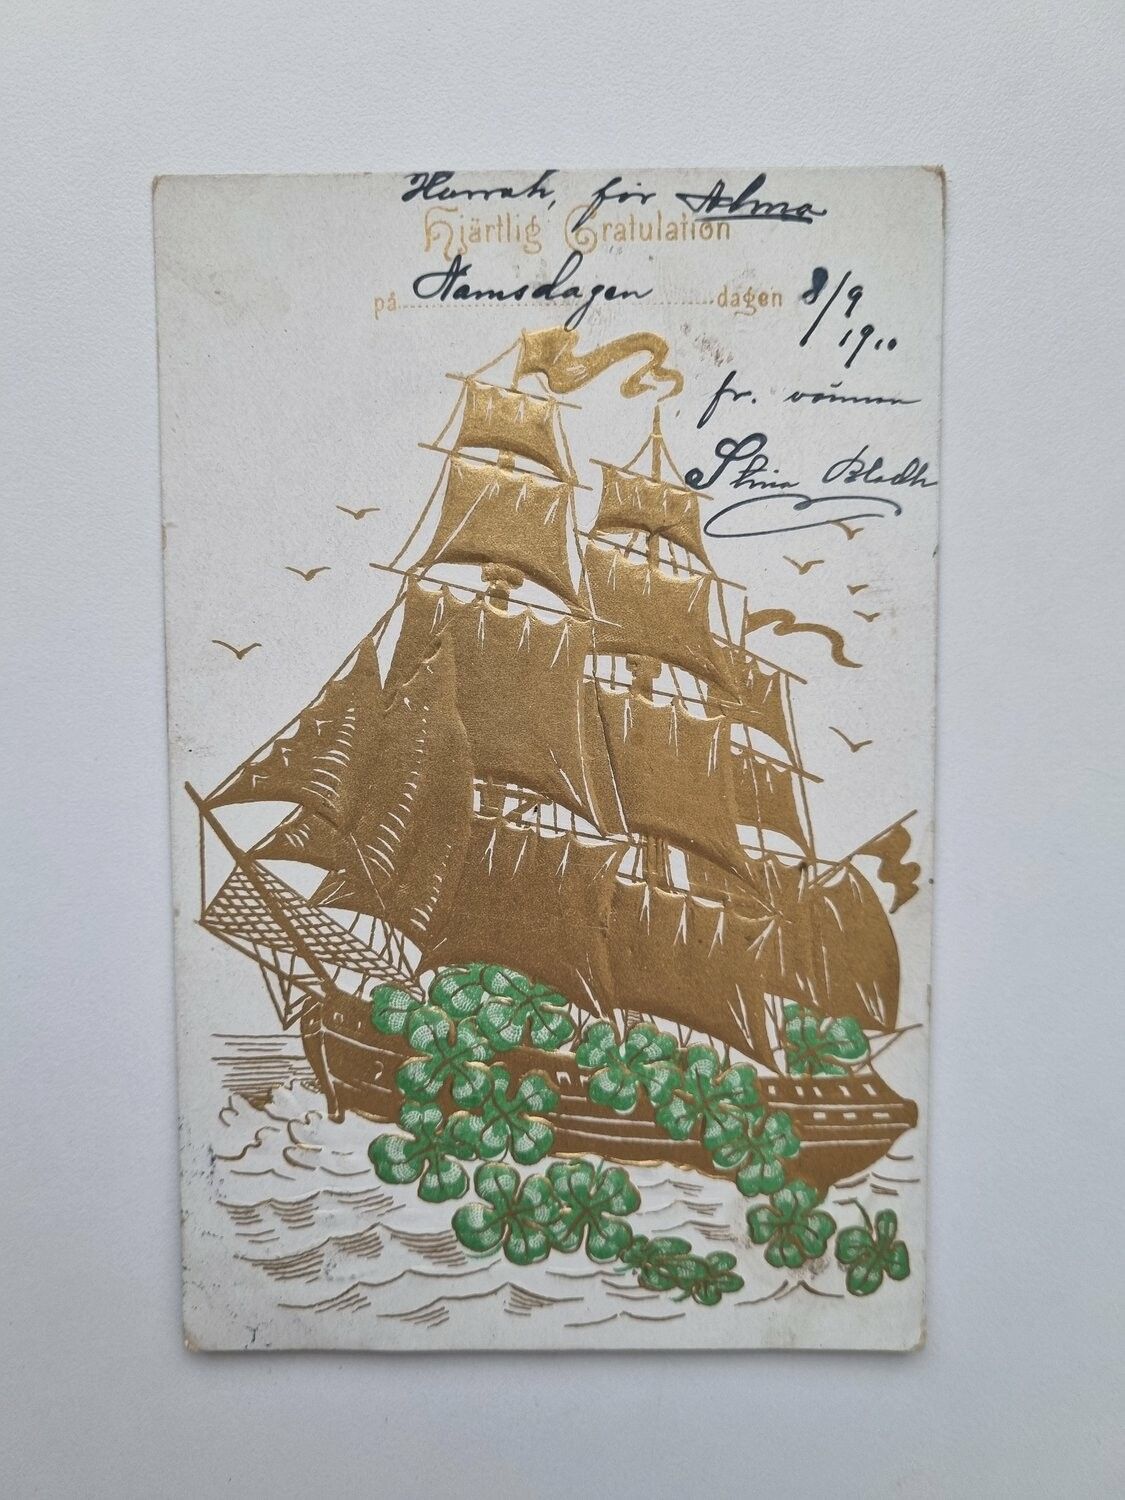 Hurrah, för Alma
Hjärtlig Gratulation
på Namsdagen dagen 8/9
1910
fr. vännen
Stina Bladh